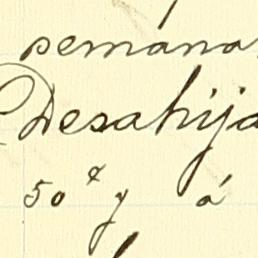 semana
Desahija
50 x y á